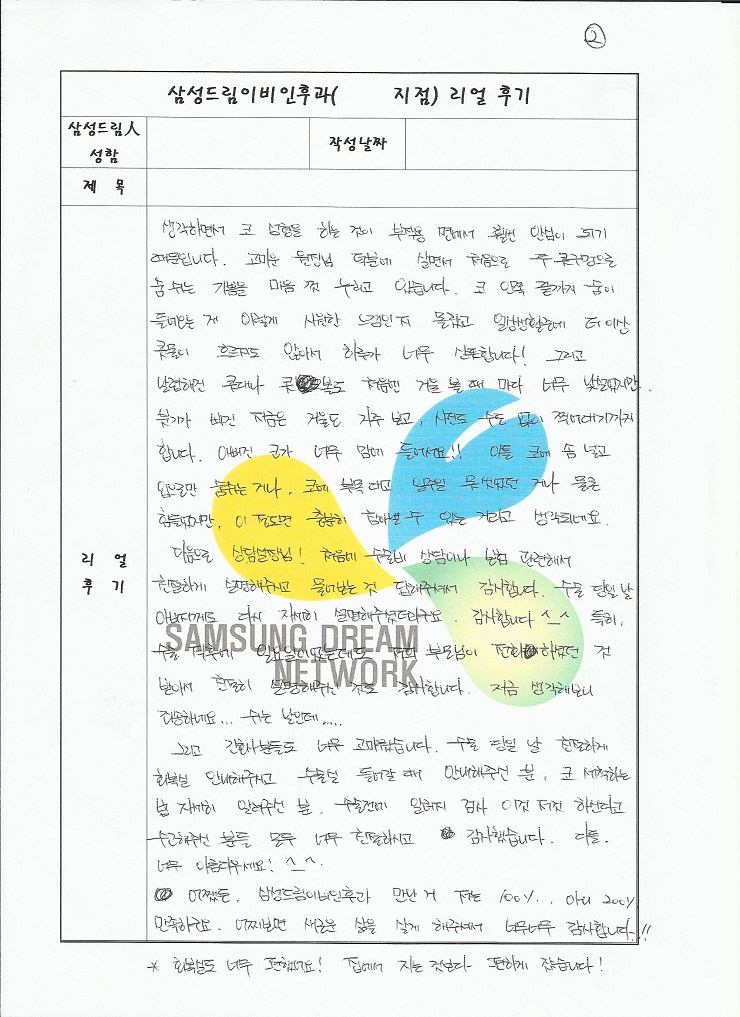 2
삼성드림이비인후과( 지점) 리얼 후기
삼성드림人
성함
작성날짜
제 목
리 얼
후 기
생각하면서 코 성형을 하는 것이 부작용 면에서 훨씬 안심이 되기
때문입니다. 고마운 원장님 덕분에 살면서 처음으로 두 콧구멍으로
숨 쉬는 기쁨을 마음 껏 누리고 있습니다. 코 안쪽 끝까지 숨이
들어오는 게 이렇게 시원한 느낌인지 몰랐고 일상생활중에 더 이상
콧물이 흐르지도 않아서 하루가 너무 산뜻합니다! 그리고
날렵해진 콧대나 콧볼도 처음엔 거울 볼 때 마다 너무 낯설었지만.
붓기가 빠진 지금은 거울도 자주 보고, 사진도 수도 없이 찍어대기까지
합니다. 예뻐진 코가 너무 맘에 들어서요!! 이틀 코에 솜 넣고
입으로만 숨쉬는 거나, 코에 부목 대고 일주일 못 씻었던 거나 물론
힘들었지만, 이 정도면 충분히 참아낼 수 있는 거라고 생각되네요.
다음으로 상담실장님! 처음에 수술비 상담이나 보험 관련해서
친절하게 설명해주시고 물어보는 것 답해주셔서 감사합니다. 수술 당일 날
아버지께도 다시 자세히 설명해주셨더라구요. 감사합니다 ^_^ 특히,
수술 직후에 일요일이었는데도 저희 부모님이 전화하셨던 것
받아서 친절히 설명해주신 것도 감사합니다. 지금 생각해보니
죄송하네요... 쉬는 날인데....
그리고 간호사분들도 너무 고마웠습니다. 수술 당일 날 친절하게
회복실 안내해주시고 수술실 들어갈 때 안내해주신 분, 코 세척하는
법 자세히 알려주신 분, 수술전에 알러지 검사 이것 저것 하신다고
수고해주신 분들 모두 너무 친절하시고 감사했습니다. 다들.
너무 아름다우세요! ^_^
어쨌든, 삼성드림이비인후과 만난 거 저는 100%.. 아니 200%
만족하구요. 어찌보면 새로운 삶을 살게 해주셔서 너무너무 감사합니다!!
* 회복실도 너무 편했어요! 집에서 자는 것보다 편하게 잤습니다!
SAMSUNG DREAM
NETWORK